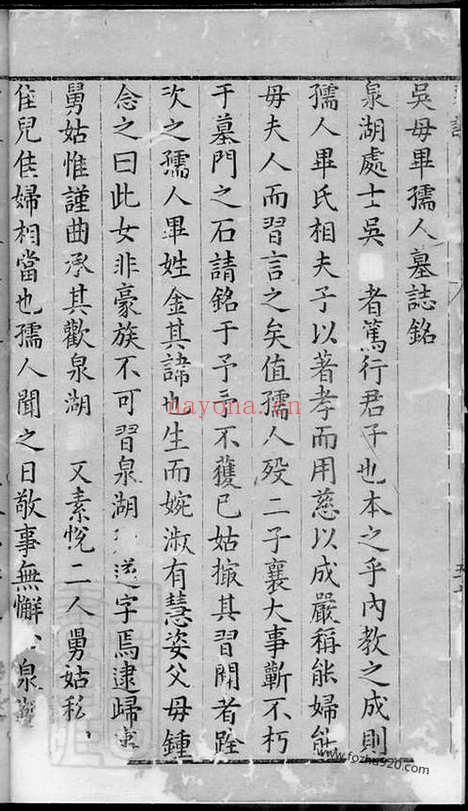 吳母畢孺人墓誌銘
泉湖處士吳 者篤行君子也本之乎內教之成則
孺人畢氏相夫子以著孝而用慈以成嚴稱能婦能
母夫人而習言之矣值孺人歿二子襄大事蘄不朽
于墓門之石請銘于予予不獲已姑撮其習聞者詮
次之孺人畢姓金其諱也生而婉淑有慧姿父母鍾
念之曰此女非豪族不可習泉湖 字焉逮歸事
舅姑惟謹曲承其歡泉湖 又素悅二人舅姑私
佳兒佳婦相當也孺人聞之日敬事無懈 泉湖
nayona.cn
www.fozhu920.com